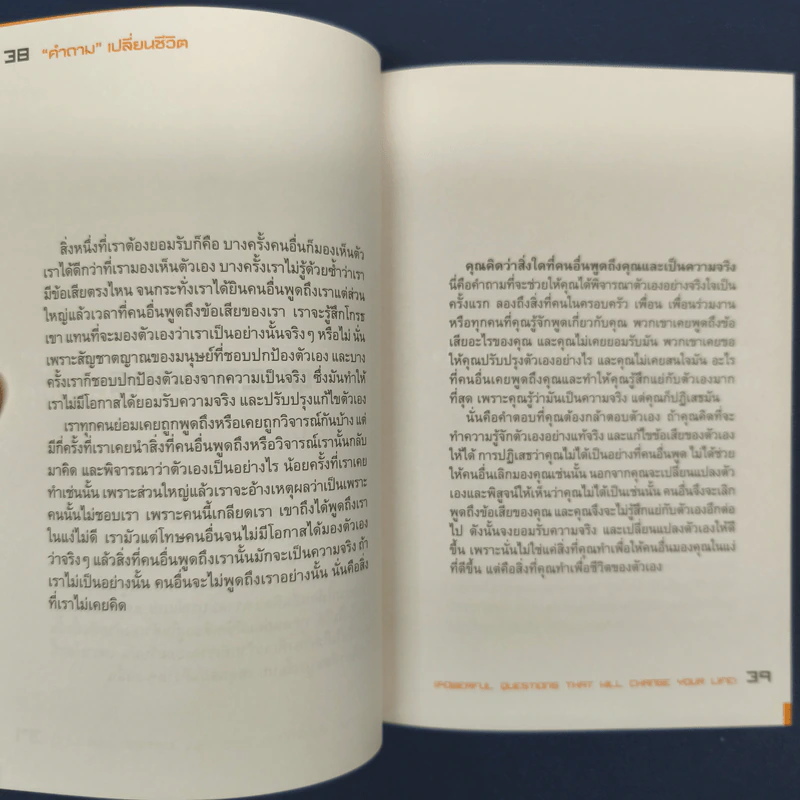 38 "คำถาม" เปลี่ยนชีวิต
สิ่งหนึ่งที่เราต้องยอมรับก็คือ บางครั้งคนอื่นก็มองเห็นตัว
เราได้ดีกว่าที่เรามองเห็นตัวเอง บางครั้งเราไม่รู้ด้วยซ้ำว่าเรา
มีข้อเสียตรงไหน จนกระทั่งเราได้ยินคนอื่นพูดถึงเราแต่ส่วน
ใหญ่แล้วเวลาที่คนอื่นพูดถึงข้อเสียของเรา เราจะรู้สึกโกรธ
เขา แทนที่จะมองตัวเองว่าเราเป็นอย่างนั้นจริงๆ หรือไม่ นั่น
เพราะสัญชาตญาณของมนุษย์ที่ชอบปกป้องตัวเอง และบาง
ครั้งเราก็ชอบปกป้องตัวเองจากความเป็นจริง ซึ่งมันทำให้
เราไม่มีโอกาสได้ยอมรับความจริง และปรับปรุงแก้ไขตัวเอง
เราทุกคนย่อมเคยถูกพูดถึงหรือเคยถูกวิจารณ์กันบ้าง แต่
มีกี่ครั้งที่เราเคยนำสิ่งที่คนอื่นพูดถึงหรือวิจารณ์เรานั้นกลับ
มาคิด และพิจารณาว่าตัวเองเป็นอย่างไร น้อยครั้งที่เราเคย
ทำเช่นนั้น เพราะส่วนใหญ่แล้วเราจะอ้างเหตุผลว่าเป็นเพราะ
คนนั้นไม่ชอบเรา เพราะคนนี้เกลียดเรา เขาถึงได้พูดถึงเรา
ในแง่ไม่ดี เรามัวแต่โทษคนอื่นจนไม่มีโอกาสได้มองตัวเอง
ว่าจริงๆ แล้วสิ่งที่คนอื่นพูดถึงเรานั้นมักจะเป็นความจริง ถ้า
เราไม่เป็นอย่างนั้น คนอื่นจะไม่พูดถึงเราอย่างนั้น นั่นคือสิ่ง
ที่เราไม่เคยคิด
คุณคิดว่าสิ่งใดที่คนอื่นพูดถึงคุณและเป็นความจริง
นี่คือคำถามที่จะช่วยให้คุณได้พิจารณาตัวเองอย่างจริงใจเป็น
ครั้งแรก ลองถึงสิ่งที่คนในครอบครัว เพื่อน เพื่อนร่วมงาน
หรือทุกคนที่คุณรู้จักพูดเกี่ยวกับคุณ พวกเขาเคยพูดถึงข้อ
เสียอะไรของคุณ และคุณไม่เคยยอมรับมัน พวกเขาเคยขอ
ให้คุณปรับปรุงตัวเองอย่างไร และคุณไม่เคยสนใจมัน อะไร
ที่คนอื่นเคยพูดถึงคุณและทำให้คุณรู้สึกแย่กับตัวเองมาก
ที่สุด เพราะคุณรู้ว่ามันเป็นความจริง แต่คุณก็ปฏิเสธมัน
นั่นคือคำตอบที่คุณต้องกล้าตอบตัวเอง ถ้าคุณคิดที่จะ
ทำความรู้จักตัวเองอย่างแท้จริง และแก้ไขข้อเสียของตัวเอง
ให้ได้ การปฏิเสธว่าคุณไม่ได้เป็นอย่างที่คนอื่นพูด ไม่ได้ช่วย
ให้คนอื่นเลิกมองคุณเช่นนั้น นอกจากคุณจะเปลี่ยนแปลงตัว
เองและพิสูจน์ให้เห็นว่าคุณไม่ได้เป็นเช่นนั้น คนอื่นจึงจะเลิก
พูดถึงข้อเสียของคุณ และคุณจึงจะไม่รู้สึกแย่กับตัวเองอีกต่อ
ไป ดังนั้นจงยอมรับความจริง และเปลี่ยนแปลงตัวเองให้ดี
ขึ้น เพราะนั่นไม่ใช่แค่สิ่งที่คุณทำเพื่อให้คนอื่นมองคุณในแง่
ที่ดีขึ้น แต่คือสิ่งที่คุณทำเพื่อชีวิตของตัวเอง
(POWERFUL QUESTIONS THAT WILL CHANGE YOUR LIFE) 39